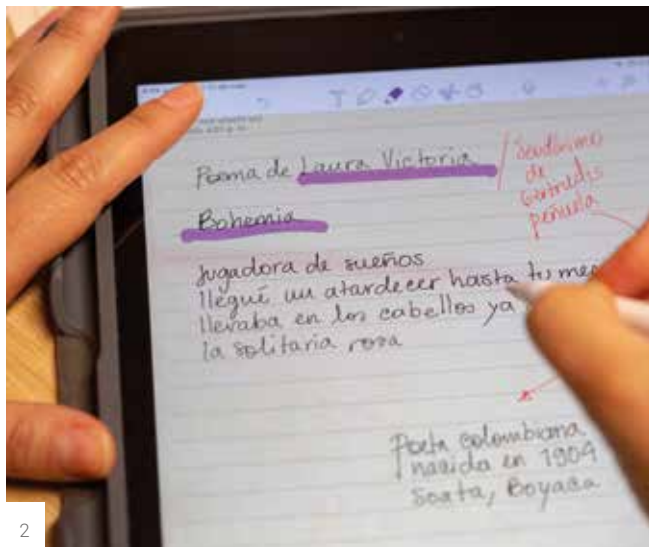 Poema de Laura Victoria
Seudónimo
de
Gertrudis
peñuela
Bohemia
Jugadora de sueños
llegué un atardecer hasta tu me
llevaba en los cabellos ya
la solitaria rosa
Poeta colombiana
nacida en 1904
Soata, Boyacá
2